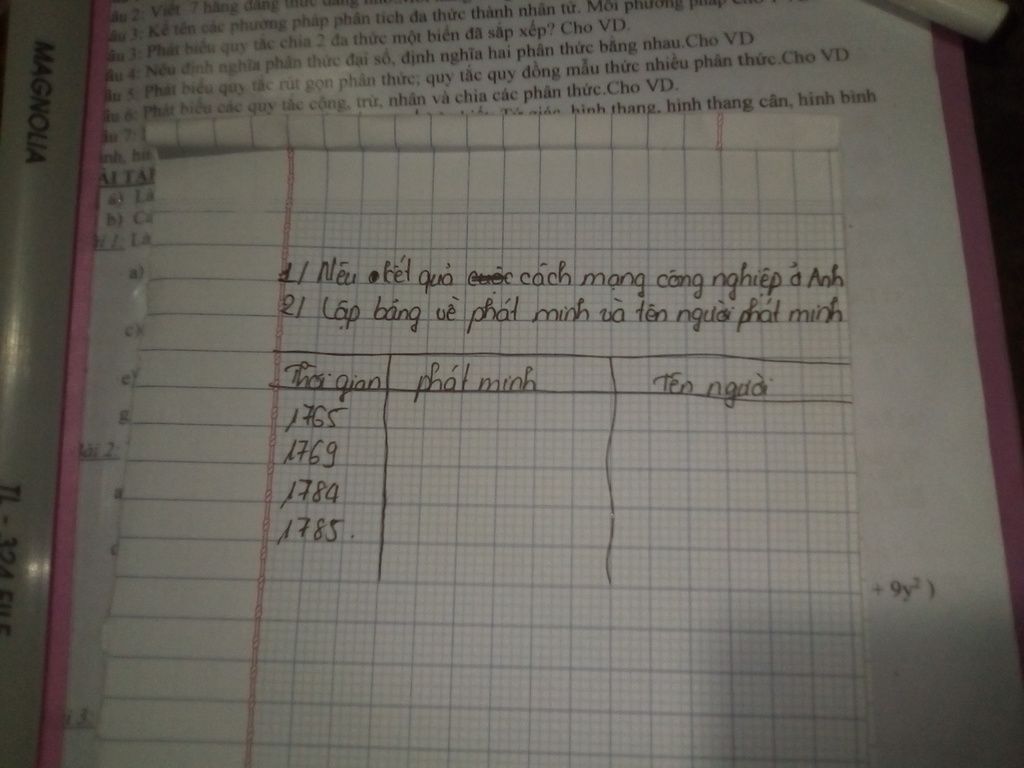 âu 2: Viết 7 hằng đẳng thức đáng nhớ.
âu 3: Kể tên các phương pháp phân tích đa thức thành nhân tử. Mỗi phương pháp Cho
âu 3: Phát biểu quy tắc chia 2 đa thức một biến đã sắp xếp? Cho VD.
âu 4: Nêu định nghĩa phân thức đại số, định nghĩa hai phân thức bằng nhau.Cho VD
âu 5: Phát biểu quy tắc rút gọn phân thức; quy tắc quy đồng mẫu thức nhiều phân thức.Cho VD
âu 6: Phát biểu các quy tắc cộng, trừ, nhân và chia các phân thức.Cho VD.
âu 7: Tứ giác, hình thang, hình thang cân, hình bình
ành,
ÀI TẬP
a) Là
b) Cá
i 1: Là
a)
c)
e)
g
Bài 2:
3:
+ 9y² )
MAGNOLIA
TL - 324 FILE
1/ Nêu kết quả cuộc cách mạng công nghiệp ở Anh
2/ Lập bảng về phát minh và tên người phát minh
Thời gian phát minh Tên người
1765
1769
1784
1785.